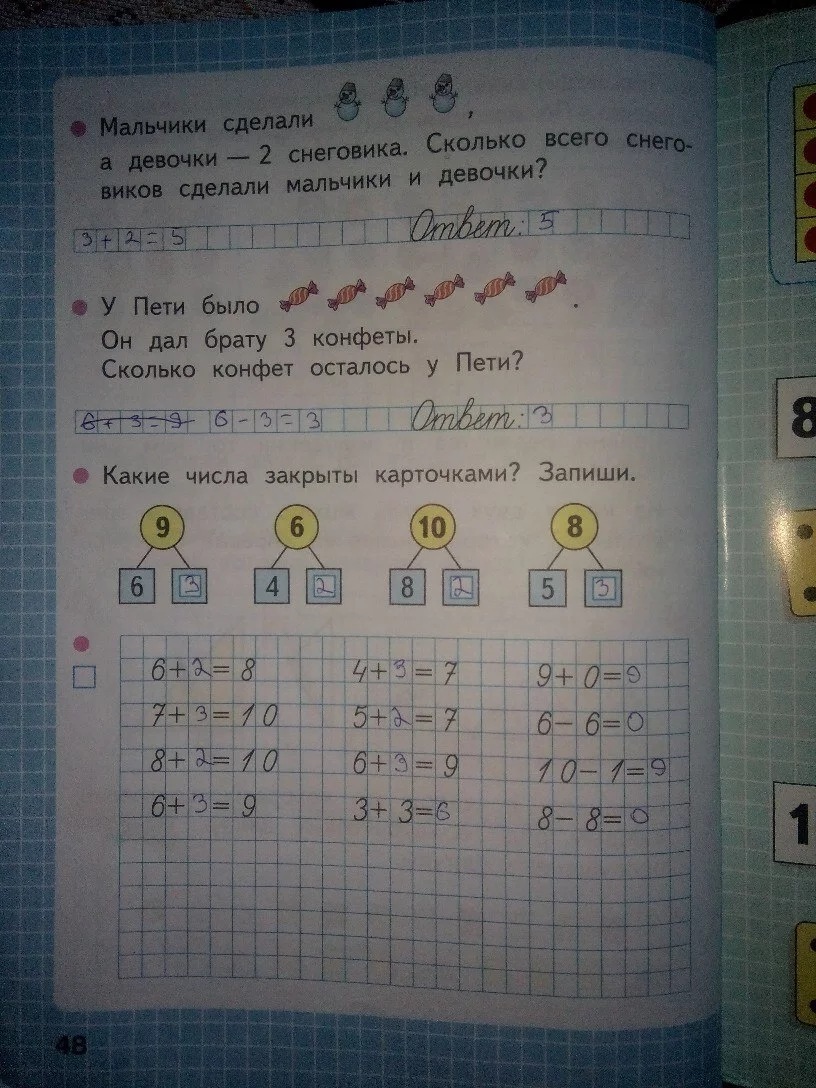 Мальчики сделали ,
а девочки — 2 снеговика. Сколько всего снего-
виков сделали мальчики и девочки?
3+2=5 Ответ: 5
У Пети было .
Он дал брату 3 конфеты.
Сколько конфет осталось у Пети?
6+3=9 6-3=3 Ответ: 3
Какие числа закрыты карточками? Запиши.
9 6 10 8
6 3 4 2 8 2 5 3
6+2=8 4+3=7 9+0=9
7+3=10 5+2=7 6-6=0
8+2=10 6+3=9 10-1=9
6+3=9 3+3=6 8-8=0
48
8
1